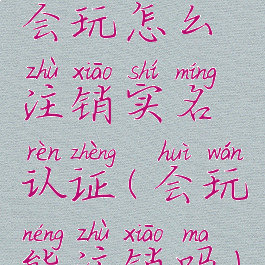 会玩怎么
zhù xiāo shí míng
注销实名
rèn zhèng huì wán
认证(会玩
néng zhù xiāo ma
能注销吗)